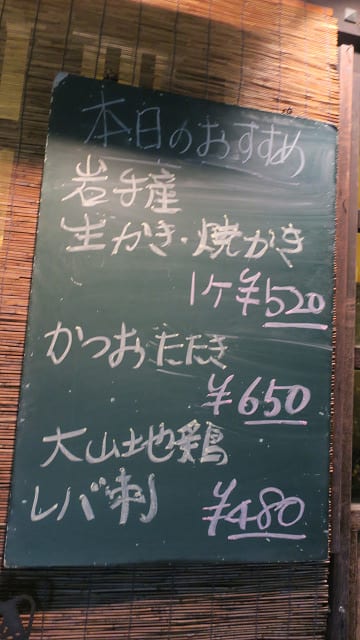 本日のおすすめ
岩手産
生かき・焼がき
1ケ¥520
かつおたたき
¥650
大山地鶏
レバ刺 ¥480